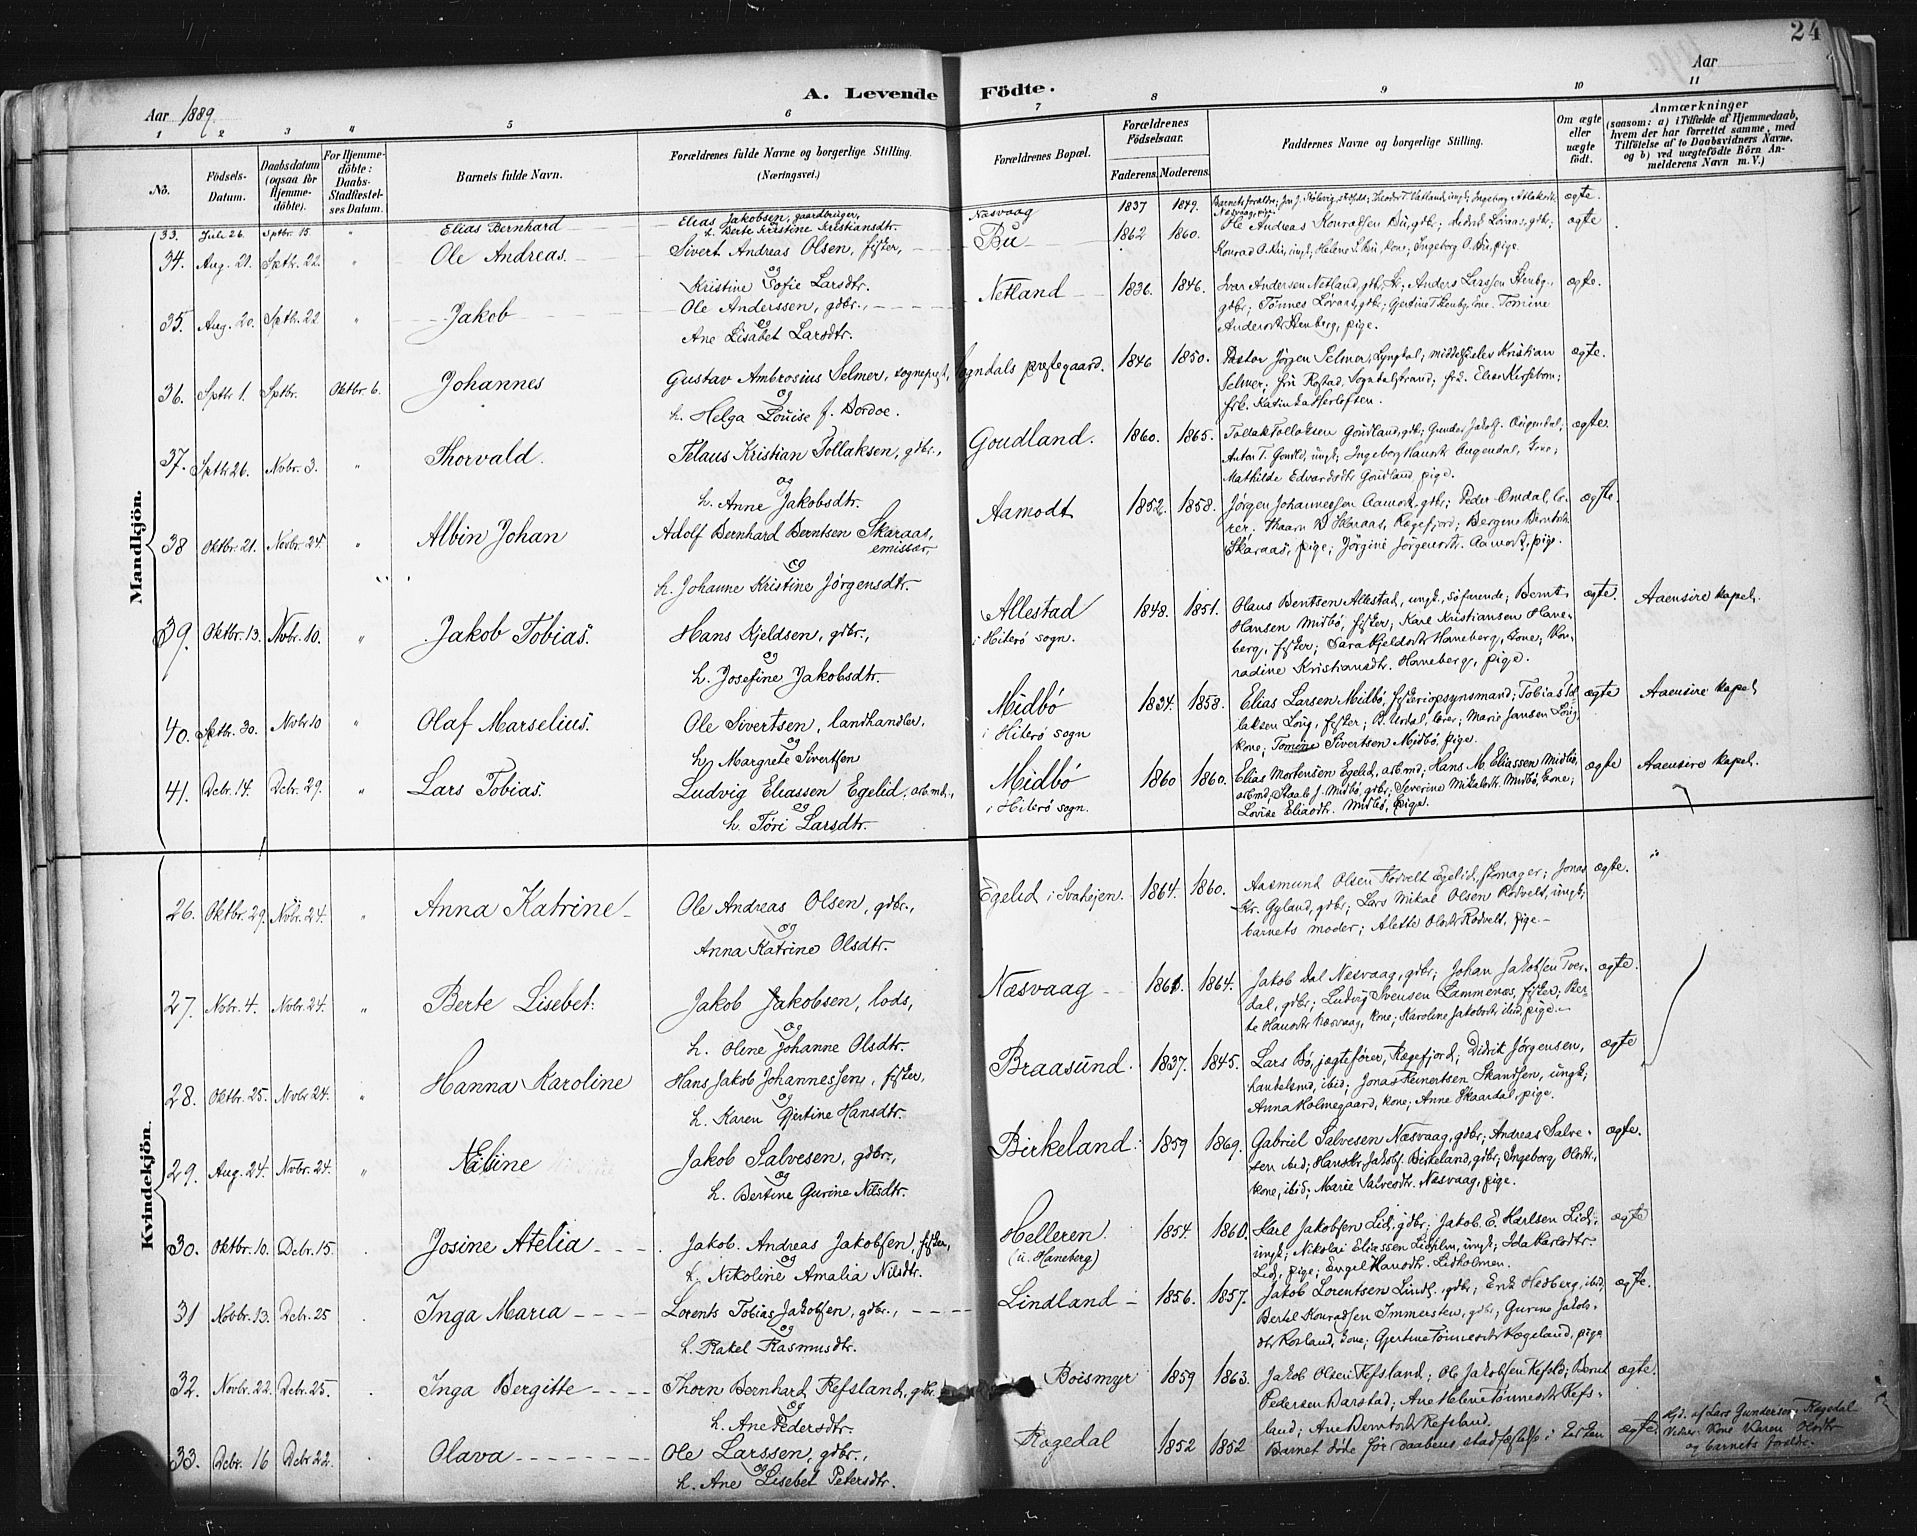 24
Aar 1889.
A. Levende Födte.
Aar
1 2 3 „ 5 6 7 8 9 10 11
No.
Födsels-Datum.
Daabsdatum (ogsaa for Hjemme-döbte).
For Hjemme-döbte: Daabs-Stadfæstel-ses Datum.
Barnets fulde Navn.
Forældrenes fulde Navne og borgerlige Stilling. (Næringsvei.)
Forældrenes Bopæl.
Forældrenes Födselsaar.
Faderens. Moderens.
Faddernes Navne og borgerlige Stilling.
Om ægte eller uægte födt.
Anmærkninger
(saasom: a) i Tilfælde af Hjemmedaab, hvem der har forrettet samme, med Tilföielse af to Daabsvidners Navne, og b) ved uægtefödte Börn Anmelderens Navn m. V.)
Mandkjön.
33. Juli 26. Sptbr. 15. „ Elias Bernhard Elias Jakobsen, gaardbruger, Næsvaag 1837 1849. ægte.
h. Berte Kristine Kristiansdtr.
34. Aug. 21. Sptbr. 22. „ Ole Andreas. Sivert Andreas Olsen, fisker, Bu 1862 1860. Ole Andreas Konradsen Bu, gdbr; ægte
og Kristine Sofie Larsdtr. Konrad O. Bu, ungk; Helene S. Bu, kone; Ingeborg O. Bu, pige.
35. Aug. 20. Sptbr. 22 „ Jakob Ole Anderssen, gdbr., Netland 1836. 1846. Ivar Andersen Netland, gdbr; Anders Larssen Stenbg., ægte.
og Ane Lisabet Larsdtr. gdbr; Tönnes Lövaas, gdbr; Gjertine T. Stenbg, kone. Tomine
Andersdtr Stenberg, pige.
36. Sptbr. 1. Sptbr. Oktbr. 6. Johannes Gustav Ambrosius Selmer, sogneprest, Sogndals præstegaard. 1846 1850. Pastor Jörgen Selmer, Lyngdal; middelskoleelev Kristian ægte.
og h. Helga Louise f. Bordoe. Selmer; fru Rostad, Sogndalstrand; fru. Elise Kirsebom;
frk. Katinka Herlofsen.
37. Sptbr 26. Novbr. 3. „ Thorvald. Telaus Kristian Tollaksen, gdbr., Goudland. 1860. 1865. Tollak Tollaksen Goudland, gdb; ægte.
og h. Anne Jakobsdtr. Anton T. Goudld, ungk; Ingeborg
Mathilde Edvardsdtr Goudland, pige.
38 Oktbr. 21. Novbr. 24. „ Albin Johan Adolf Bernhard Berntsen Skaraas, emissær, Aamodt 1852. 1858. Jörgen Johannessen Aamodt, gdbr; Peder Omdal, læ- ægte.
og h. Johanne Kristine Jörgensdtr. rer; Skaaraas, Rægefjord; Bergine Berntsdtr
Skaraas, pige; Jörgine Jörgensdtr. Aamodt, pige.
39. Oktbr. 13. Novbr. 10. „ Jakob Tobias. Hans Kjeldsen, gdbr., Allestad i Hiterö sogn. 1848. 1851. Olaus Bentsen Allestad, ungk, söfarende; Bernt ægte. Aaensire kapel.
og h. Josefine Jakobsdtr. Hansen Midbö, fisker; Karl Kristiansen Hane-
berg, fisker; Sara Kjeldsdtr Haneberg, kone; Kon-
radine Kristiansdtr. Haneberg, pige.
40. Sptbr. 30. Novbr 10 „ Olaf Marselius. Ole Sivertsen, landhandler, Midbö i Hiterö sogn 1834. 1858. Elias Larsen Midbö, fiskeriopsynsmand; Tobias Tol- ægte Aaensire kapel
og h. Margrete Sivertsen laksen Löig, fisker; P. Urdal, lærer; Marie Jansen Löig,
kone; Tomine Sivertsen Midbö, pige.
41. Dcbr. 14. Dcbr. 29. „ Lars Tobias. Ludvig Eliassen Egelid, arb.md., Midbö i Hiterö sogn. 1860 1860. Elias Mortensen Egelid, arbmd; Hans M. Eliassen Midbö, ægte Aaensire kapel.
og h. Töri Larsdtr. arbmd; Staale J. Midbö, gdbr; Severine Mikalsdtr. Midbö, kone;
Lovise Eliasdtr. Midbö, pige.
Kvindekjön.
26. Oktbr. 29. Novbr. 24. „ Anna Katrine Ole Andreas Olsen, gdbr., Egelid i Svaheien. 1864. 1860. Aasmund Olsen Rödvelt Egelid, skomager; Jonas ægte. „
og Anna Katrine Olsdtr. Kr. Gyland, gdbr; Lars Mikal Olsen Rödvelt, ungk;
barnets moder; Alette Olsdtr Rödvelt, pige
27. Novbr. 4. Novbr. 24. „ Berte Lisebet. Jakob Jakobsen, lods, Næsvaag 1861. 1864. Jakob Dal Næsvaag, gdbr; Johan Jakobsen Tver- ægte.
og h. Oline Johanne Olsdtr. dal, gdbr; Ludvig Svensen Lammenæs, fisker; Ber-
te Hansdtr Næsvaag, kone; Karoline Jakobsdtr ibid, pige.
28. Oktbr. 25. Novbr 24. „ Hanna Karoline Hans Jakob Johannessen, fisker, Braasund. 1837. 1845. Lars Bö, jagtefører, Rægefjord; Didrik Jörgensen, ægte
og h. Karen Gjertine Hansdtr. handelsmd, ibid; Jonas Reinertsen Skandsen, ungk;
Anna Holmegaard, kone; Anne Skaardal, pige.
29. Aug. 24. Novbr. 24. „ Eline Jakob Salvesen, gdbr., Birkeland. 1859 1869. Gabriel Salvesen Næsvaag, gdbr; Andreas Salve- ægte.
og h. Bertine Gurine Nilsdtr. sen ibid; Hans Kr. Jakobs. Birkeland, gdbr; Ingeborg Olsdtr.,
kone, ibid; Marie Salvesdtr. Næsvaag, pige.
30. Oktbr. 10. Dcbr. 15. Josine Atelia Jakob Andreas Jakobsen, fisker, Helleren. (u. Haneberg) 1854. 1860. Karl Jakobsen Lid, gdbr; Jakob E. Karlsen Lid, ægte
og h. Nikoline Amalia Nilsdtr. ungk; Nikolai Eliassen Lidhlm, ungk; Ida Karlsdtr.
Lid, pige; Engel Hansdtr. Lidholmen.
31 Novbr. 13. Dcbr. 25 Inga Maria Lorents Tobias Jakobsen, gdbr., Lindland 1856. 1857. Jakob Lorentsen Lindl., gdbr; Erik Hedberg, ibid; ægte.
og h. Rakel Rasmusdtr. Bertel Konradsen Immersten, gdbr; Gurine Jakobs-
dtr Rosland, kone; Gjertine Tönnesdtr Rægeland, pige
32. Novbr. 22. Dcbr. 25. Inga Bergitte Thorn Bernhard Refsland, gdbr. Boismyr 1859 1863. Jakob Olsen Refsland; Ole Jakobsen Refsld; Bernt ægte.
og h. Ane Pedersdtr. Pedersen Barstad; Ane Helene Tönnesdtr Refs-
land; Ane Berntsdtr Refsland.
33. Dcbr. 16 Dcbr. 22. Olava Ole Larssen, gdbr., Rægedal 1852 1852 Barnet döde för daabens stadfæstelse i kirken ægte. Hjd. af Lars Gundersen Rægedal
og h. Ane Lisebet Petersdtr. Vidner: Kone Karen Olsdtr
og barnets forældre.